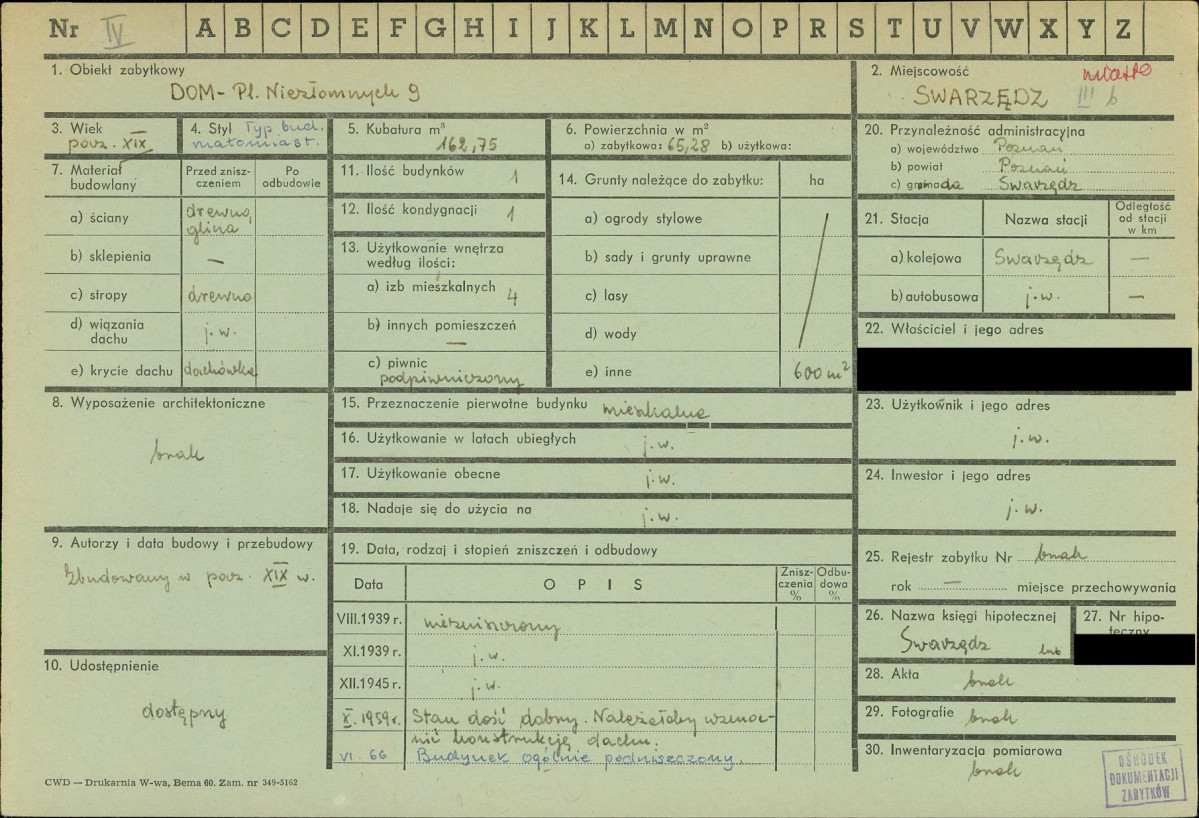 Nr IV A B C D E F G H I J K L M N O P R S T U V W X Y Z
1. Obiekt zabytkowy
DOM - Pl. Niezłomnych 9
2. Miejscowość miasto
SWARZĘDZ III b
3. Wiek
pocz. XIX
4. Styl Typ. bud.
małomiast.
5. Kubatura m³
162,75
6. Powierzchnia w m²
a) zabytkowa: 65,28 b) użytkowa:
7. Materiał budowlany
Przed zniszczeniem
Po odbudowie
a) ściany drewno, glina
b) sklepienia —
c) stropy drewno
d) wiązania dachu j.w.
e) krycie dachu dachówka
8. Wyposażenie architektoniczne
brak
9. Autorzy i data budowy i przebudowy
Zbudowany w pocz. XIX w.
10. Udostępnienie
dostępny
11. Ilość budynków 1
12. Ilość kondygnacji 1
13. Użytkowanie wnętrza
według ilości:
a) izb mieszkalnych 4
b) innych pomieszczeń
—
c) piwnic
podpiwniczony
14. Grunty należące do zabytku: ha
a) ogrody stylowe
b) sady i grunty uprawne
c) lasy
d) wody
e) inne 600 m²
15. Przeznaczenie pierwotne budynku mieszkalne
16. Użytkowanie w latach ubiegłych j.w.
17. Użytkowanie obecne j.w.
18. Nadaje się do użycia na j.w.
19. Data, rodzaj i stopień zniszczeń i odbudowy
Data OPIS Zniszczenia % Odbudowa %
VIII.1939 r. niezniszczony
XI.1939 r. j.w.
XII.1945 r. j.w.
X.1959 r. Stan dość dobry. Należałoby wzmoc-
nić konstrukcję dachu.
VI. 66 Budynek ogólnie podniszczony.
20. Przynależność administracyjna
a) województwo Poznań
b) powiat Poznań
c) gromada Swarzędz
21. Stacja Nazwa stacji Odległość od stacji w km
a) kolejowa Swarzędz —
b) autobusowa j.w. —
22. Właściciel i jego adres
23. Użytkownik i jego adres
j.w.
24. Inwestor i jego adres
j.w.
25. Rejestr zabytku Nr brak
rok — miejsce przechowywania
26. Nazwa księgi hipotecznej
Swarzędz lub
27. Nr hipo-
teczny
28. Akta brak
29. Fotografie brak
30. Inwentaryzacja pomiarowa
brak
OŚRODEK
DOKUMENTACJI
ZABYTKÓW
CWD — Drukarnia W-wa, Bema 60. Zam. nr 349-5162